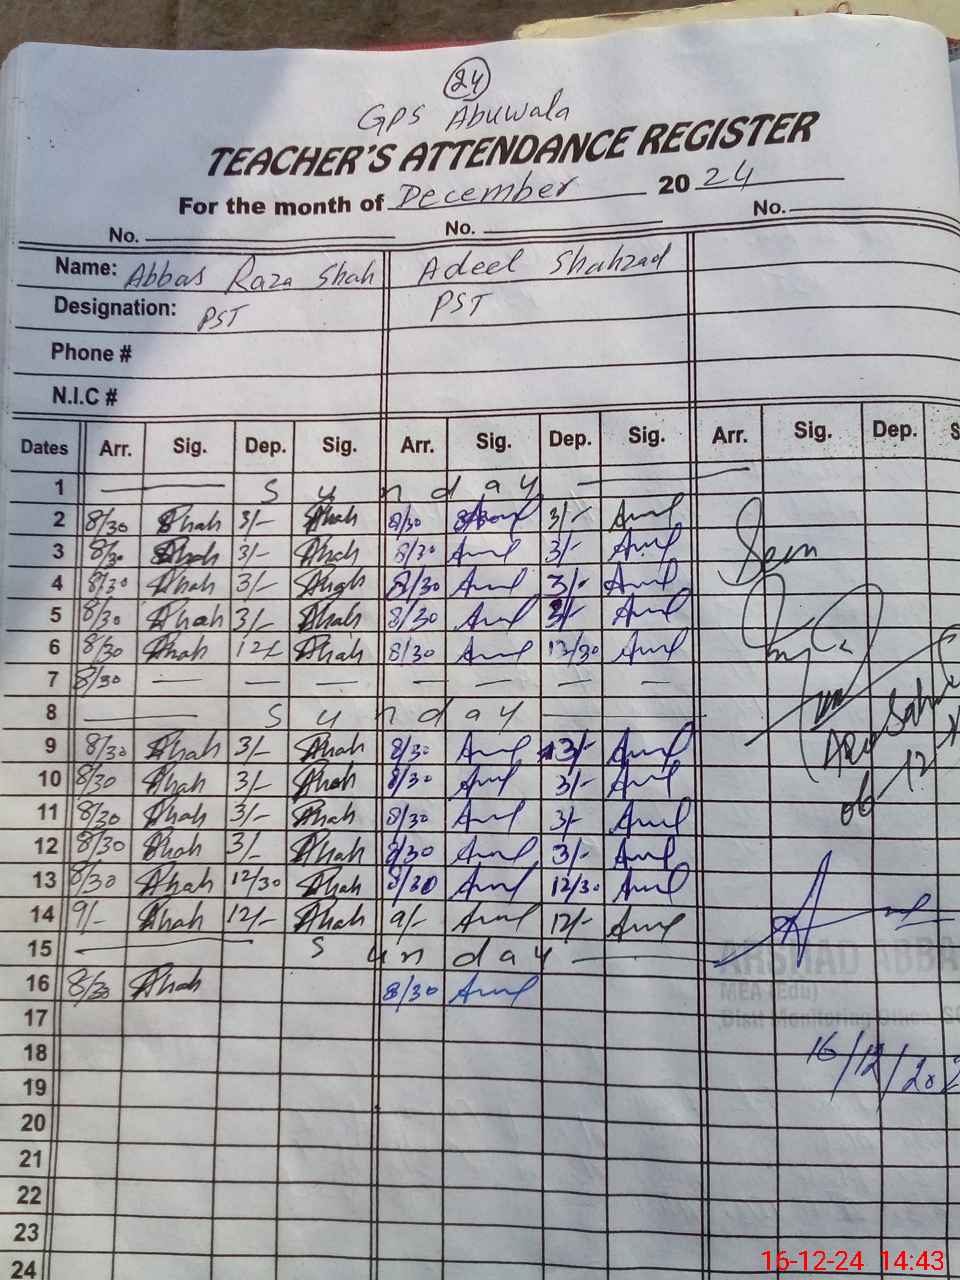 24
GPS Abuwala
TEACHER'S ATTENDANCE REGISTER
For the month of December 2024
No. No. No.
Name: Abbas Raza Shah Adeel Shahzad
Designation: PST PST
Phone #
N.I.C #
Dates Arr. Sig. Dep. Sig. Arr. Sig. Dep. Sig. Arr. Sig. Dep. S
1 Sunday
2 8/30 Shah 3/- Shah 8/30 3/-
3 8/30 Shah 3/- Shah 8/30 3/- Seen
4 8/30 Shah 3/- Shah 8/30 3/-
5 8/30 Shah 3/- Shah 8/30 3/-
6 8/30 Shah 12/- Shah 8/30 12/30
7 8/30 — — — — — — —
8 Sunday
9 8/30 Shah 3/- Shah 8/30 3/-
10 8/30 Shah 3/- Shah 8/30 3/-
06-12
11 8/30 Shah 3/- Shah 8/30 3/-
12 8/30 Shah 3/- Shah 8/30 3/-
13 8/30 Shah 12/30 Shah 8/30 12/30
14 9/- Shah 12/- Shah 9/- 12/-
15 Sunday
ARSHAD ABBA
16 8/30 Shah 8/30
MEA (Edu)
17
Distt Monitoring Officer
18
16/12/202
19
20
21
22
23
24
16-12-24 14:43